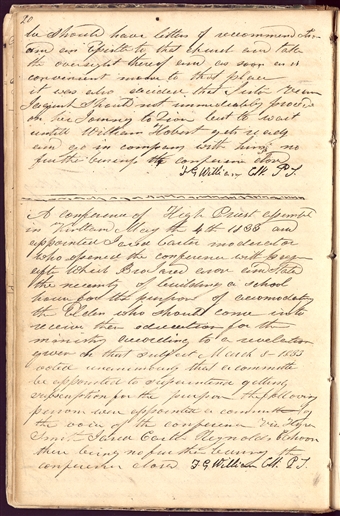 20
be should have letters of recommendation
and an Epistle to that church and take
the oversight thereof and as soon as is
convenient move to that place
it was also decided that Sister Vienna
Jaques should not immediately proceed
on her Journey to Zion but to wait
untill William Hobert gets ready
and go in company with him no
further business the conference closed
F G William Clk. P. T.
A conference of High Priest assembled
in Kirtland May the 4th 1833 and
appointed Jared Carter moderator
who opened the conference with prayer
after which Bro Jared arose and stated
the necesity of building a school
house for the purpose of accomodating
the Elders who should come in to
receive their education for the
ministry according to a revelation
given on that subject March 8 - 1833
voted unanimously that a committe
be appointed to superintend getting
subscription for the purpose the following
persons were appointed a committe by
the voice of the conference Viz Hyrum
Smith Jared Carter Reynolds Cahoon
there being no further business the
conference closed F G William Clk. P. T.